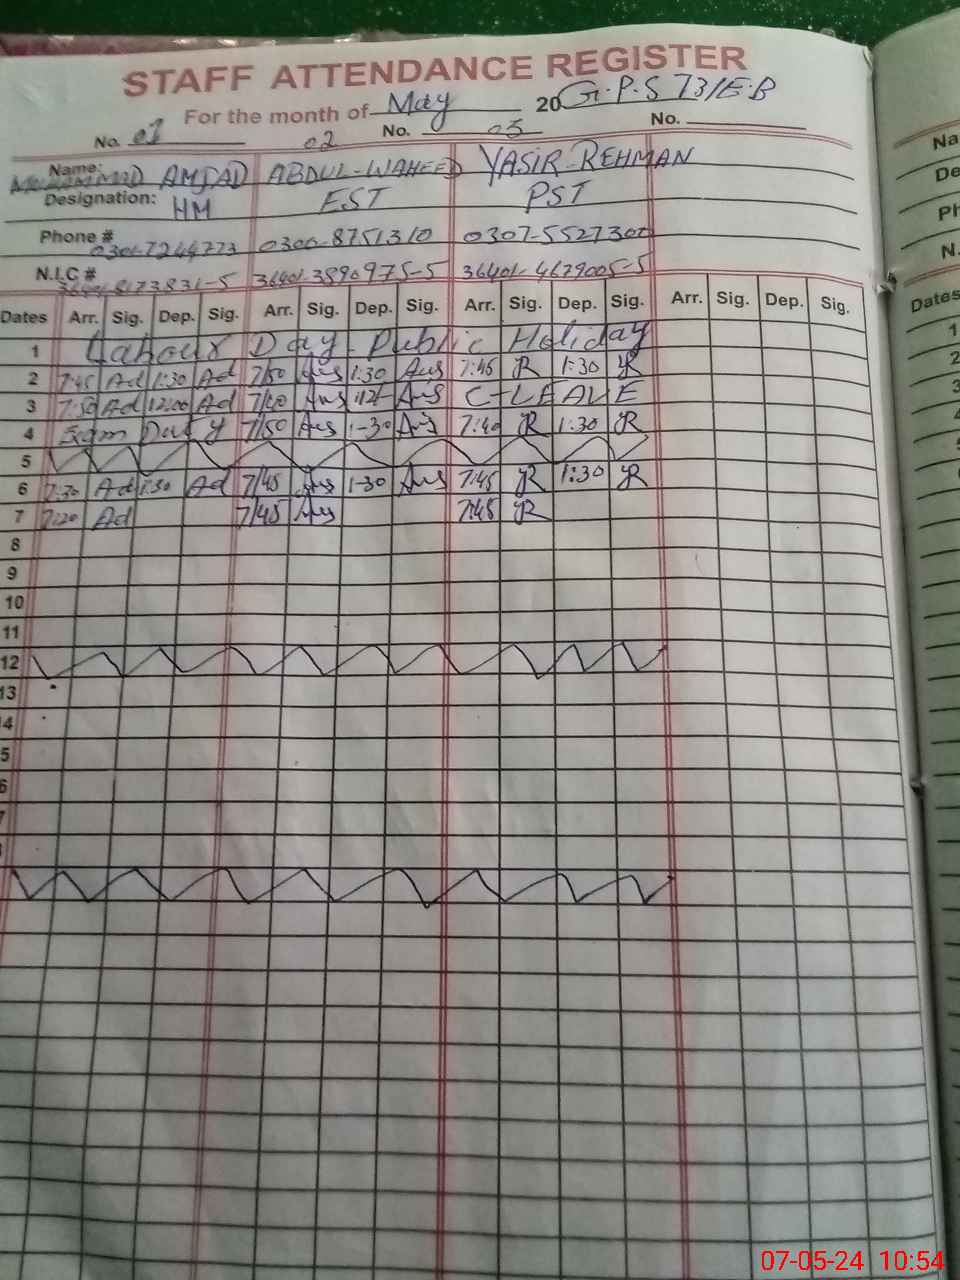 STAFF ATTENDANCE REGISTER
For the month of May 20 G.P.S 73/E.B
No. 01 02 No. 03 No.
Name: MUHAMMAD AMJAD ABDUL-WAHEED YASIR-REHMAN Na
Designation: HM EST PST De
Phone # 0301-7244773 0300-8751310 0307-5527300 Ph
N.I.C # 8173831-5 36401-3890975-5 36401-4679005-5 N.
Dates Arr. Sig. Dep. Sig. Arr. Sig. Dep. Sig. Arr. Sig. Dep. Sig. Arr. Sig. Dep. Sig. Dates
1 Labour Day Public Holiday 1
2 7:45 Ad 1:30 Ad 7/50 1:30 7:45 YR 1:30 YR 2
3 7:50 Ad 12:00 Ad C-LEAVE 3
4 Exam Duty 7/50 1-30 7:40 YR 1:30 YR 4
5
6 7:30 Ad 1:30 Ad 7/45 1-30 7:45 YR 1:30 YR
7 7:20 Ad 7/45 7:45 YR
8
9
10
11
12
13
4
5
6
7
07-05-24 10:54